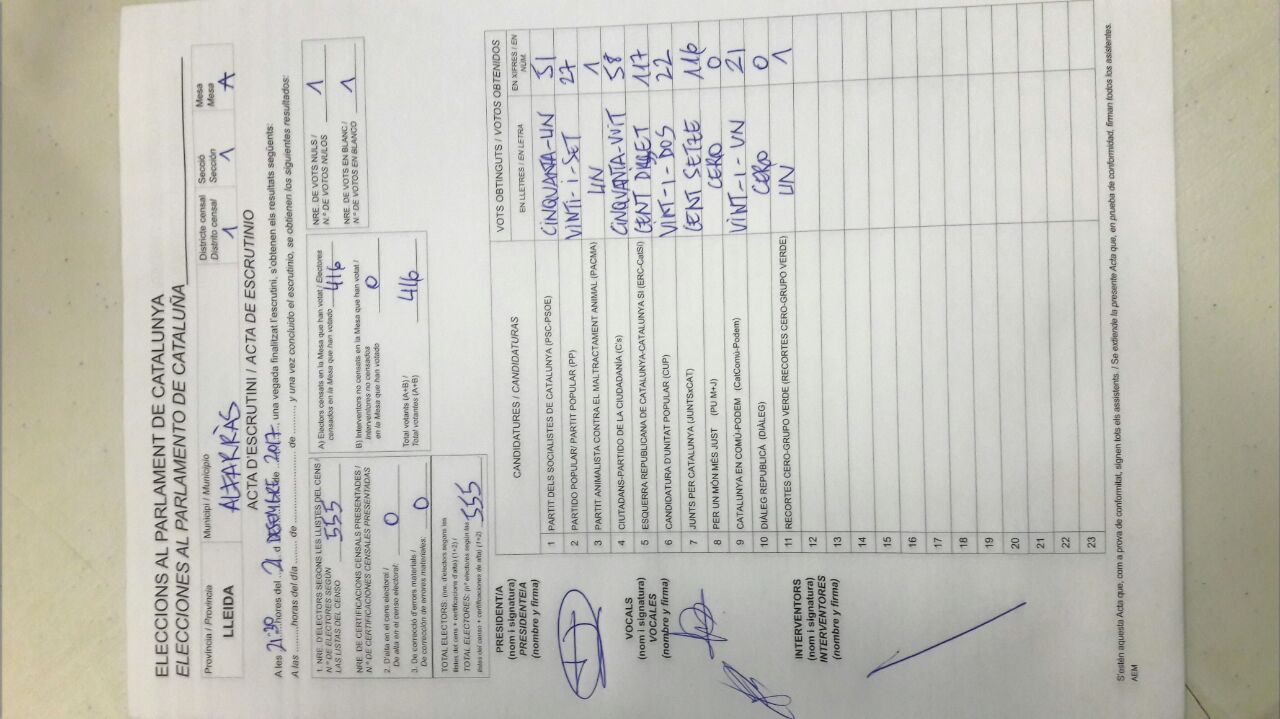 ELECCIONS AL PARLAMENT DE CATALUNYA
ELECCIONES AL PARLAMENTO DE CATALUÑA
Província / Provincia
LLEIDA
Municipi / Municipio
ALFARRÀS
Districte censal
Distrito censal
1
Secció
Sección
1
Mesa
Mesa
A
ACTA D'ESCRUTINI / ACTA DE ESCRUTINIO
A les 21:30 hores del 21 d DESEMBRE de 2017, una vegada finalitzat l'escrutini, s'obtenen els resultats següents:
A las ......... horas del día ........ de ........................ de ........, y una vez concluido el escrutinio, se obtienen los siguientes resultados:
1. NRE. D'ELECTORS SEGONS LES LLISTES DEL CENS /
N.º DE ELECTORES SEGÚN
LAS LISTAS DEL CENSO
555
NRE. DE CERTIFICACIONS CENSALS PRESENTADES /
N.º DE CERTIFICACIONES CENSALES PRESENTADAS
2. D'alta en el cens electoral /
De alta en el censo electoral:
0
3. De correcció d'errors materials /
De corrección de errores materiales:
0
TOTAL ELECTORS: (nre. d'electors segons les
llistes del cens + certificacions d'alta) (1+2) /
TOTAL ELECTORES: (nº electores según las
listas del censo + certificaciones de alta) (1+2)
555
A) Electors censats en la Mesa que han votat / Electores
censados en la Mesa que han votado
416
B) Interventors no censats en la Mesa que han votat /
Interventores no censados
en la Mesa que han votado
0
Total votants (A+B) /
Total votantes (A+B)
416
NRE. DE VOTS NULS /
N.º DE VOTOS NULOS
1
NRE. DE VOTS EN BLANC /
N.º DE VOTOS EN BLANCO
1
CANDIDATURES / CANDIDATURAS
VOTS OBTINGUTS / VOTOS OBTENIDOS
EN LLETRES / EN LETRA
EN XIFRES / EN NÚM.
1 PARTIT DELS SOCIALISTES DE CATALUNYA (PSC-PSOE) CINQUANTA-UN 51
2 PARTIDO POPULAR/ PARTIT POPULAR (PP) VINTI-I-SET 27
3 PARTIT ANIMALISTA CONTRA EL MALTRACTAMENT ANIMAL (PACMA) UN 1
4 CIUTADANS-PARTIDO DE LA CIUDADANÍA (C's) CINQUANTA-VUIT 58
5 ESQUERRA REPUBLICANA DE CATALUNYA-CATALUNYA SÍ (ERC-CatSí) CENT DISSET 117
6 CANDIDATURA D'UNITAT POPULAR (CUP) VINT-I-DOS 22
7 JUNTS PER CATALUNYA (JUNTSxCAT) CENT SETZE 116
8 PER UN MÓN MÉS JUST (PU M+J) CERO 0
9 CATALUNYA EN COMÚ-PODEM (CatComú-Podem) VINT-I-UN 21
10 DIÀLEG REPUBLICÀ (DIÀLEG) CERO 0
11 RECORTES CERO-GRUPO VERDE (RECORTES CERO-GRUPO VERDE) UN 1
12
13
14
15
16
17
18
19
20
21
22
23
PRESIDENTIA
(nom i signatura)
PRESIDENTEIA
(nombre y firma)
VOCALS
(nom i signatura)
VOCALES
(nombre y firma)
INTERVENTORS
(nom i signatura)
INTERVENTORES
(nombre y firma)
S'estén aquesta Acta que, com a prova de conformitat, signen tots els assistents. / Se extiende la presente Acta que, en prueba de conformidad, firman todos los asistentes.
AEM